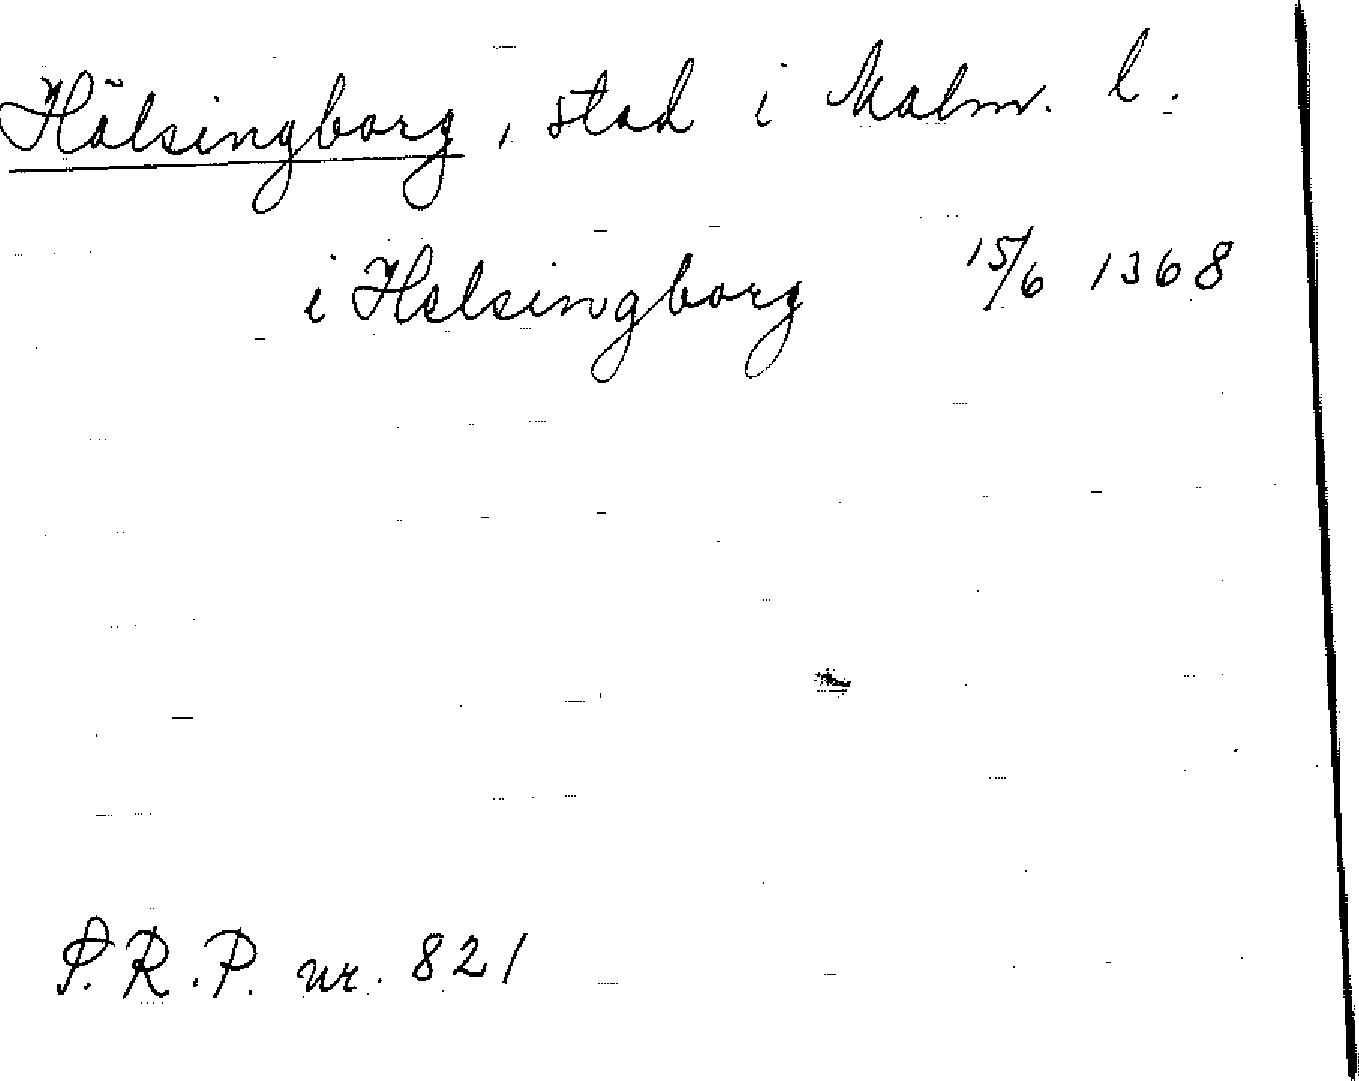 Hälsingborg, stad i Malm. l.
i Helsingborg 15/6 1368
S.R.P. nr. 821